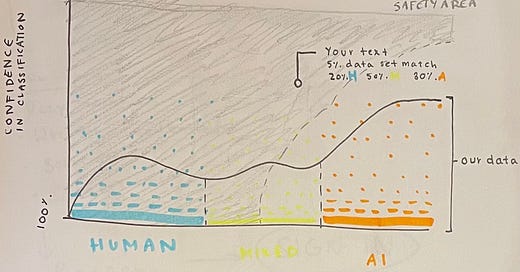 SAFETY AREA
CONFIDENCE
IN CLASSIFICATION
Your text
5% data set match
20% H 50% M 30% A
our data
100%
HUMAN
MIXED
AI